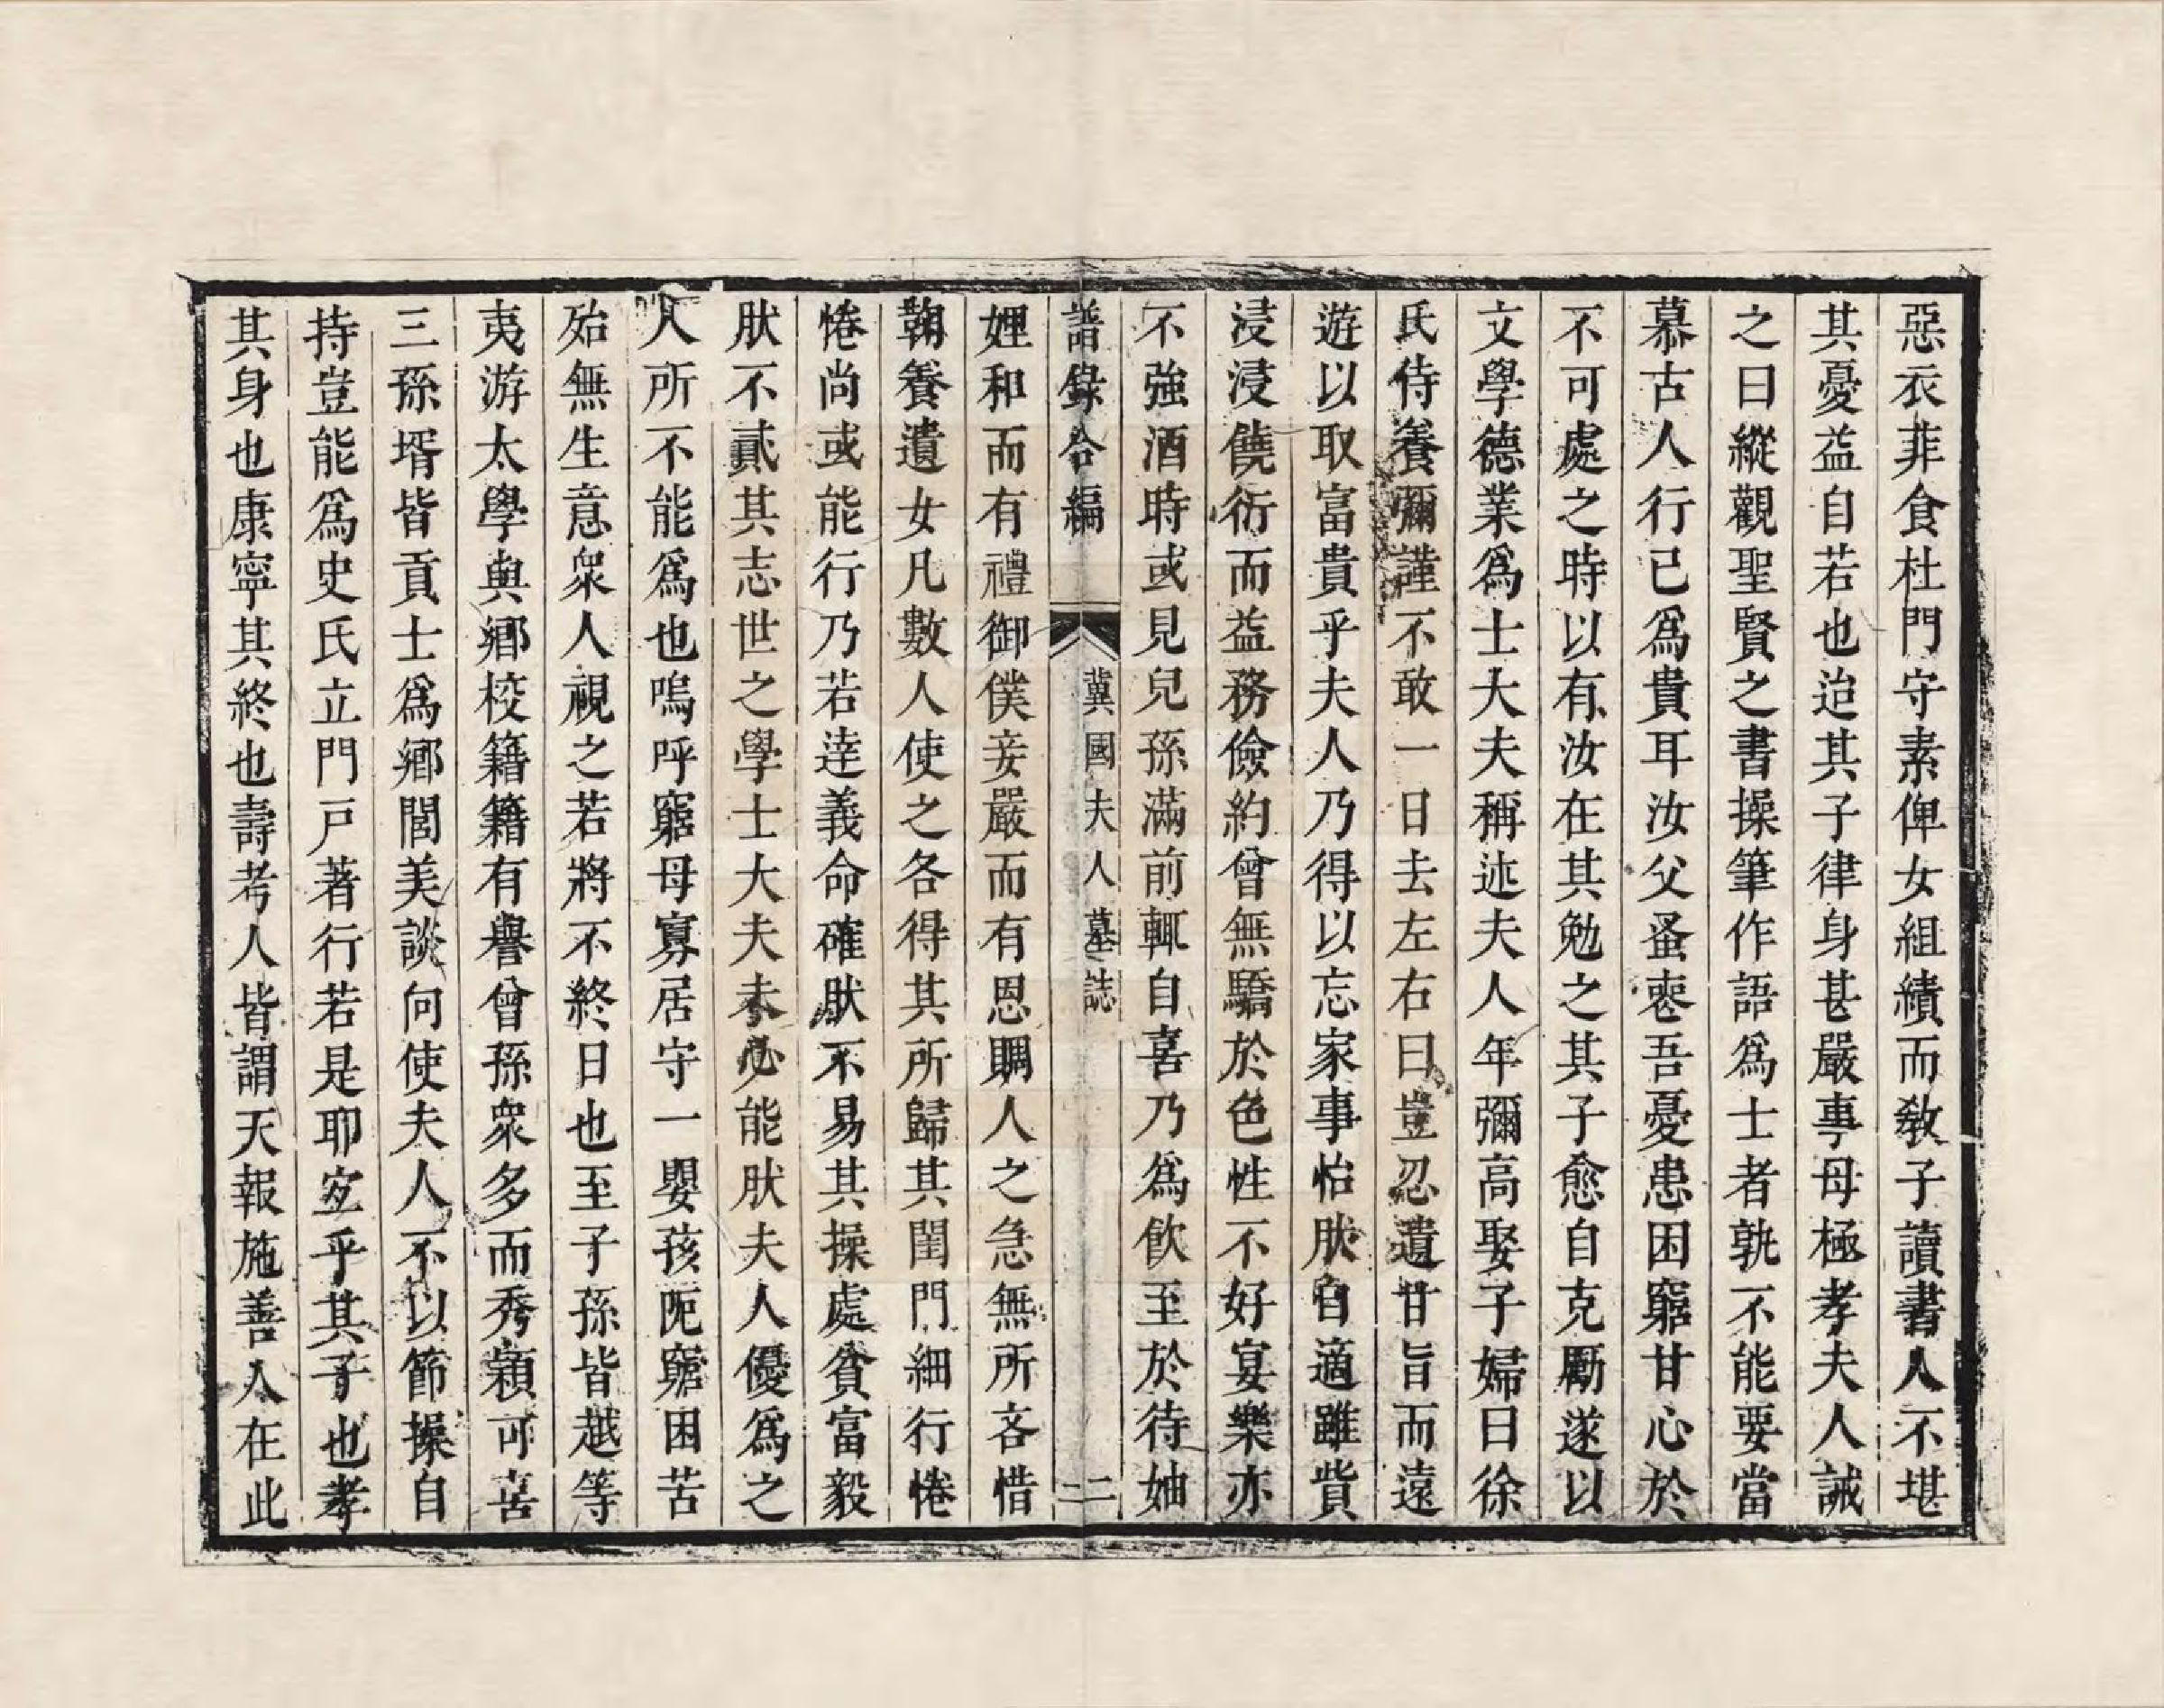 惡衣菲食杜門守素俾女組績而敎子讀書人不堪
其憂益自若也迨其子律身甚嚴事母極孝夫人誡
之曰縱觀聖賢之書操筆作語爲士者孰不能要當
慕古人行已爲貴耳汝父蚤喪吾憂患困窮甘心於
不可處之時以有汝在其勉之其子愈自克勵遂以
文學德業爲士大夫稱述夫人年彌高娶子婦曰徐
氏侍養彌謹不敢一日去左右曰豈忍遺甘旨而遠
遊以取富貴乎夫人乃得以忘家事怡肰自適雖貲
浸浸饒衍而益務儉約曾無驕於色性不好宴樂亦
不強酒時或見兒孫滿前輒自喜乃爲飮至於待妯
譜錄合編 冀國夫人墓誌 二
娌和而有禮御僕妾嚴而有恩賙人之急無所吝惜
鞠養遺女凡數人使之各得其所歸其閨門細行惓
惓尚或能行乃若逹義命確肰不易其操處貧富毅
肰不貳其志世之學士大夫未必能肰夫人優爲之
人所不能爲也嗚呼窮母寡居守一嬰孩阨窮困苦
殆無生意衆人視之若將不終日也至子孫皆越等
夷游太學與鄕校籍籍有譽曾孫衆多而秀穎可喜
三孫壻皆貢士爲鄕閭美談向使夫人不以節操自
持豈能爲史氏立門戸著行若是耶宐乎其子也孝
其身也康寧其終也壽考人皆謂天報施善人在此